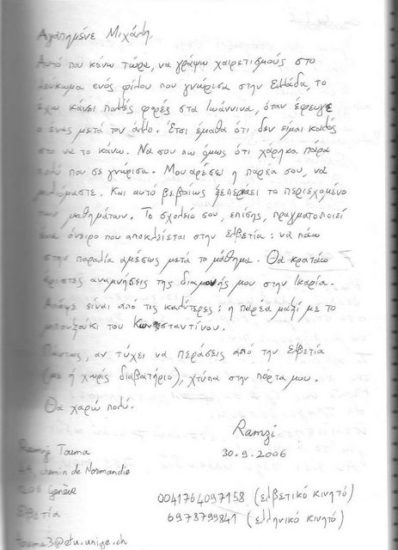 Αγαπημένε Μιχάλη,
Αυτό που κάνω τώρα, να γράφω χαιρετισμούς στο
λεύκωμα ενός φίλου που γνώρισα στην Ελλάδα, το
έχω κάνει πολλές φορές στα Ιωάννινα, όταν έφευγε
ο ένας μετά τον άλλο. Έτσι έμαθα ότι δεν είμαι καλός
στο να το κάνω. Να σου πω όμως ότι χάρηκα πάρα
πολύ που σε γνώρισα. Μου αρέσει η παρέα σου, να
μιλάμε. Και αυτό βεβαίως ξεπερνάει το περιεχόμενο
των μαθημάτων. Το σχολείο σου, επίσης, πραγματοποιεί
ένα όνειρο που αποκλείεται στην Ελβετία: να πάω
στην παραλία αμέσως μετά το μάθημα. Θα κρατάω
άριστες αναμνήσεις της διαμονής μου στην Ικαρία.
Απόψε είναι από τις καλύτερες: η παρέα μαζί με το
μπουζούκι του Κωνσταντίνου.
Πάντως, αν τύχει να περάσεις από την Ελβετία
(με ή χωρίς διαβατήριο), χτύπα στην πόρτα μου.
Θα χαρώ πολύ.
Ramzi
30.9.2006
Ramzi Touma
chemin de Normandie
1206 Genève
Ελβετία
touma3@etu.unige.ch
0041764097158 (ελβετικό κινητό)
6978799841 (ελληνικό κινητό)